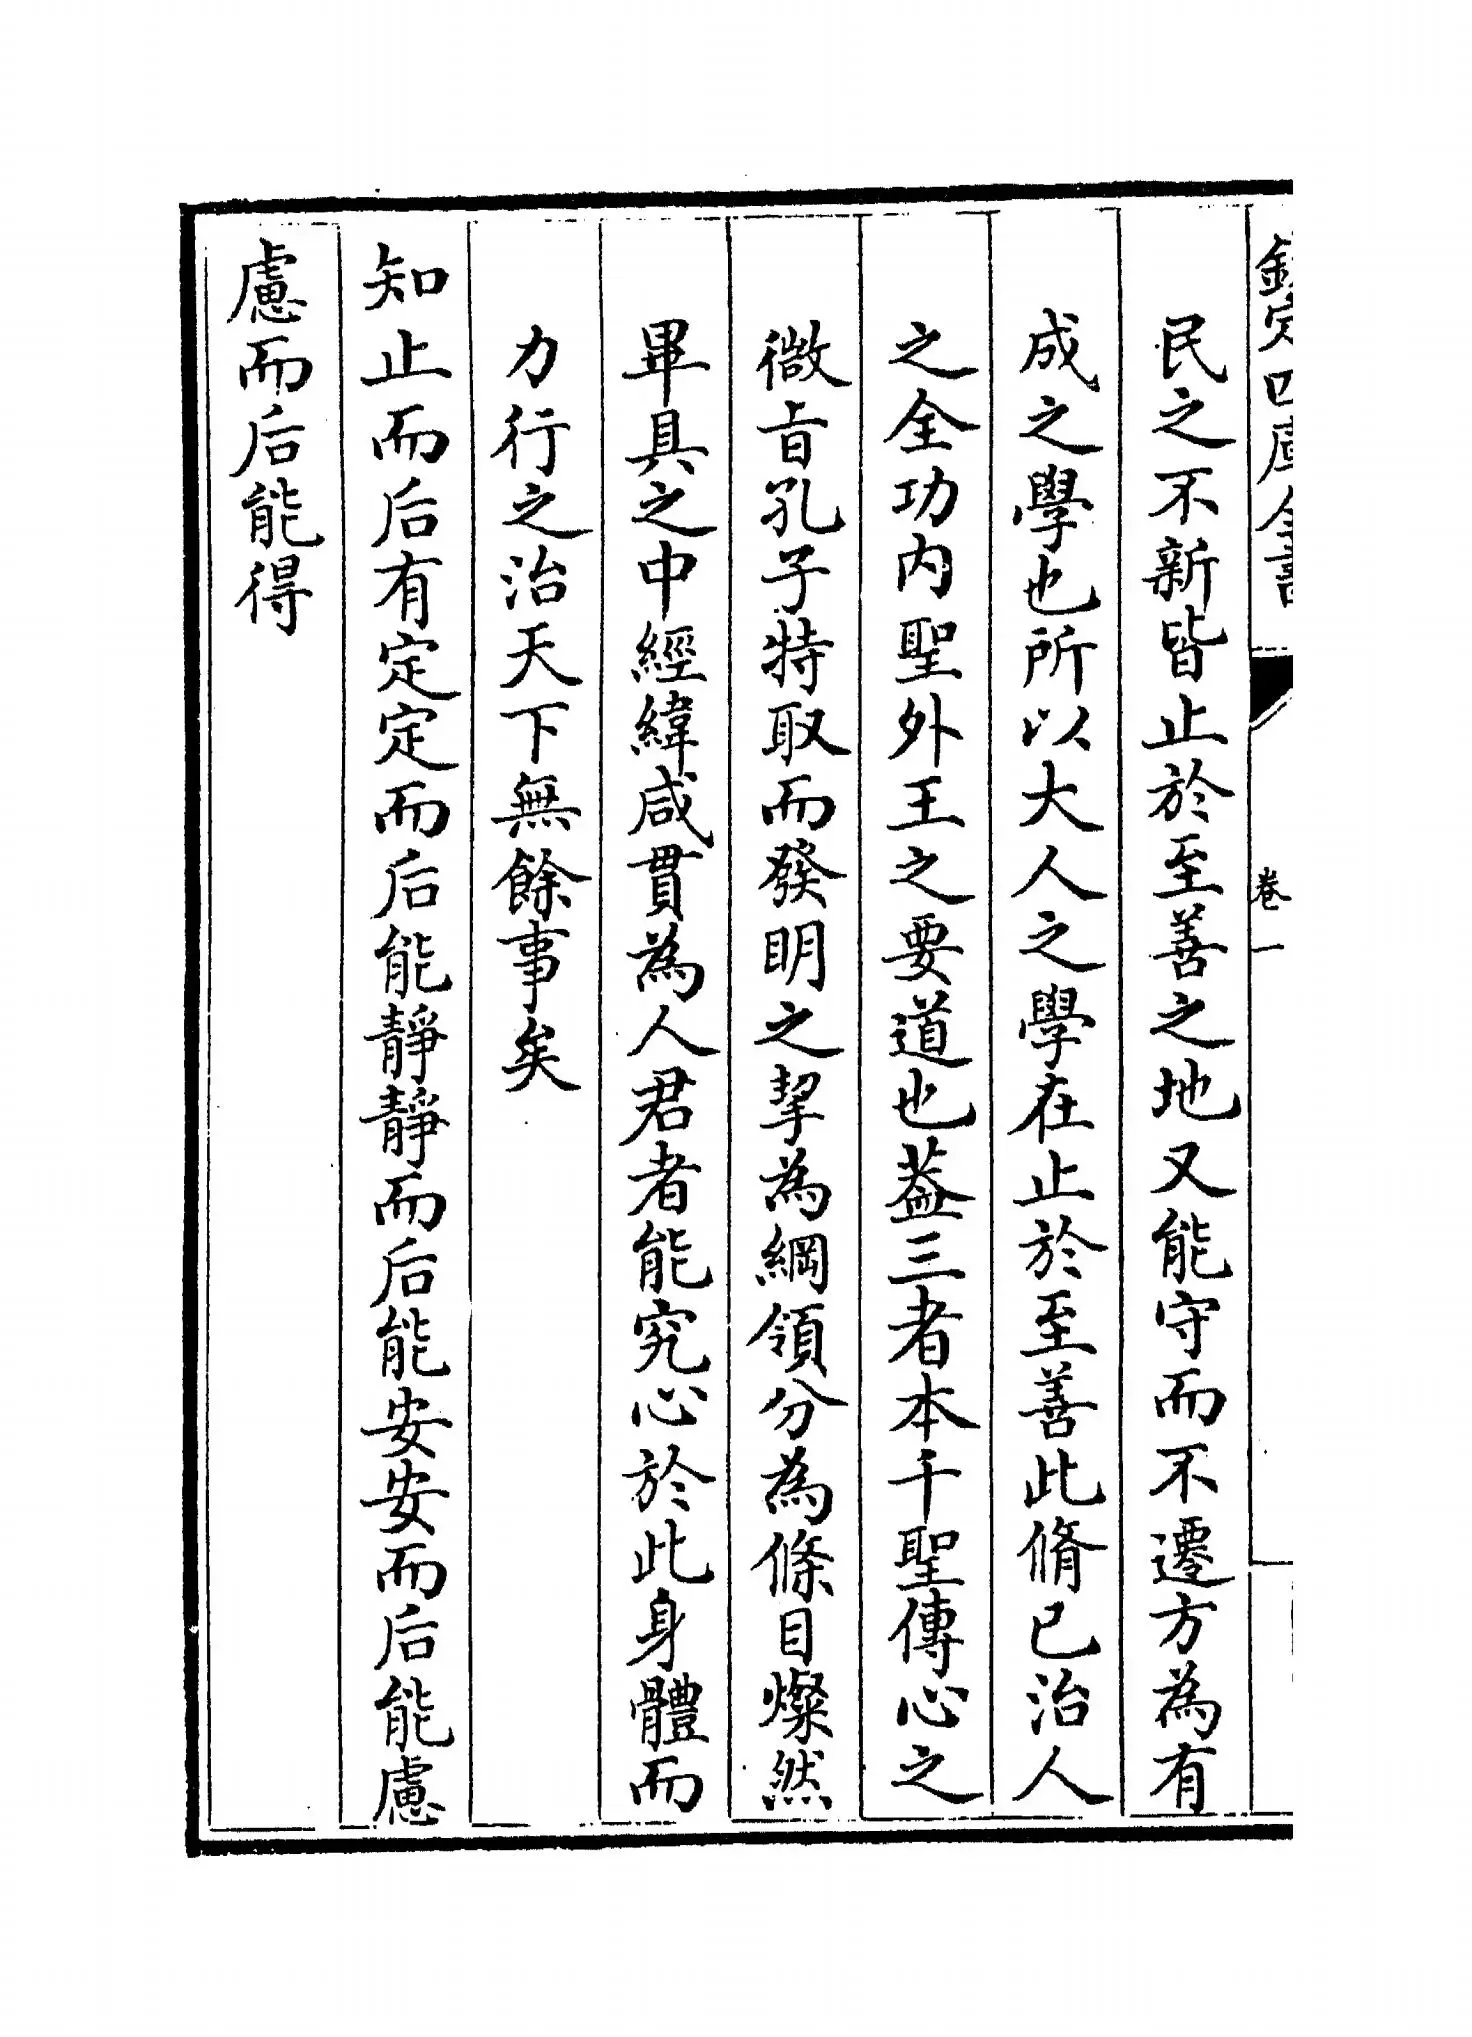 欽定四庫全書
卷一
民之不新皆止於至善之地又能守而不遷方為有
成之學也所以大人之學在止於至善此脩已治人
之全功内聖外王之要道也葢三者本千聖傳心之
微㫖孔子特取而發明之挈為綱領分為條目燦然
畢具之中經緯咸貫為人君者能究心於此身體而
力行之治天下無餘事矣
知止而后有定定而后能靜靜而后能安安而后能慮
慮而后能得